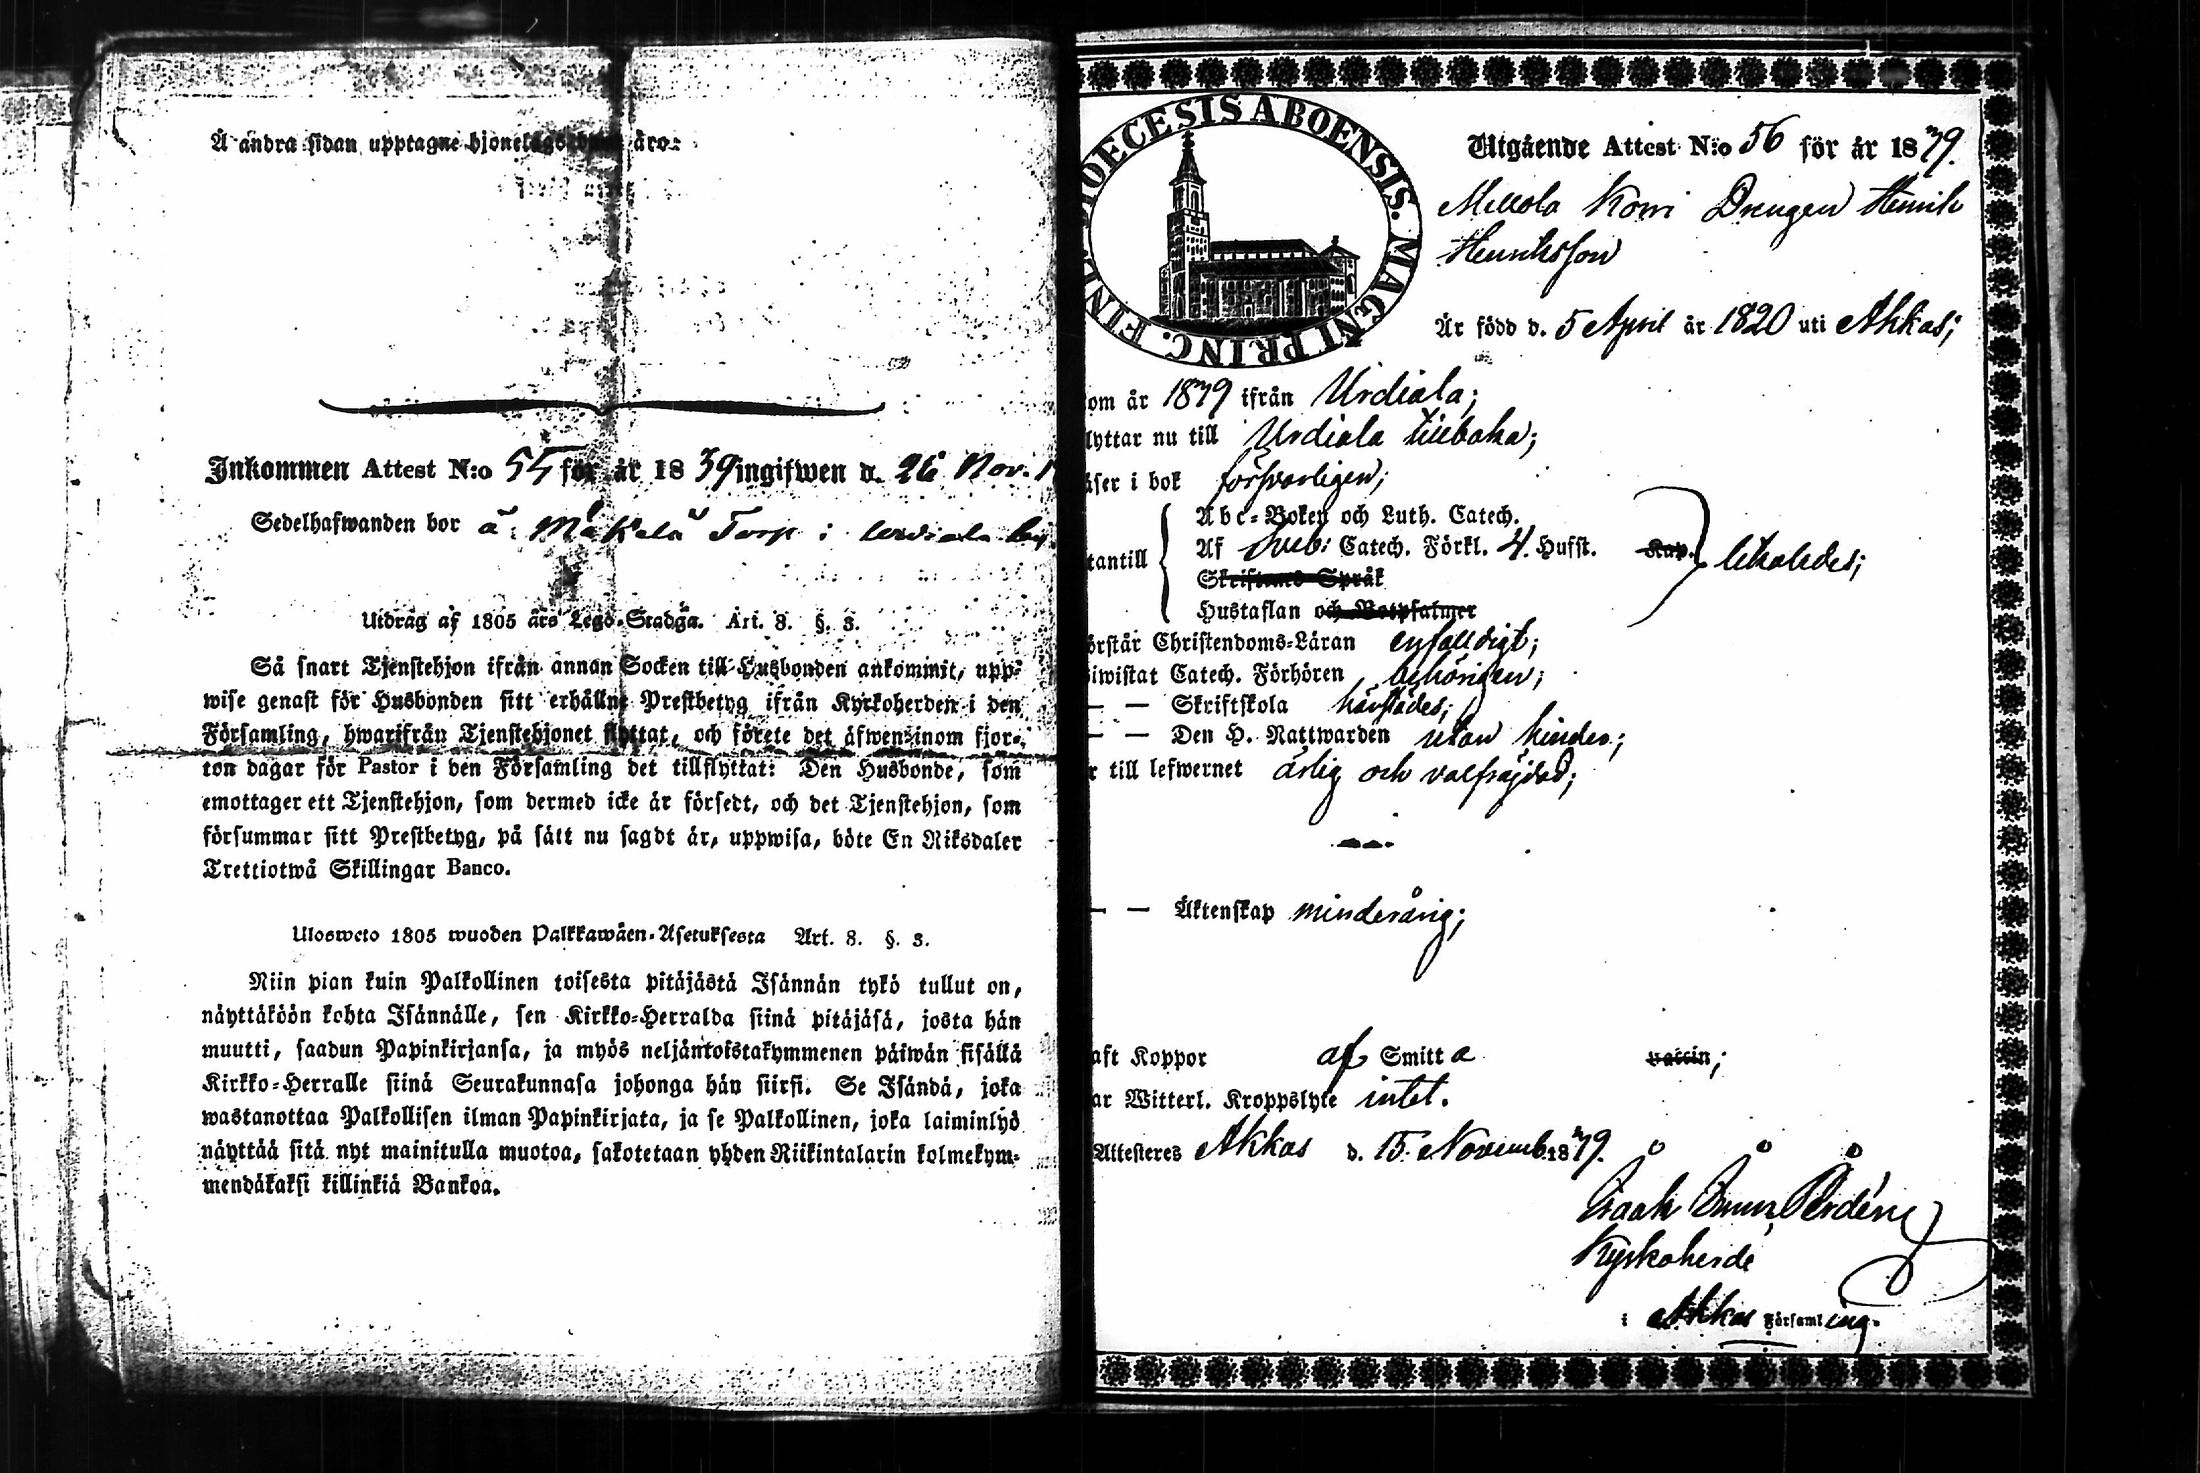 Å andra sidan upptagne hjonelags äro:
Inkommen Attest N:o 55 för år 1839 ingifwen d. 26 Nov.
Sedelhafwanden bor å Mäkelä Torp i Urdiala by.
Utdrag af 1805 års Lego-Stadga. Art. 8. §. 3.
Så snart Tjenstehjon ifrån annan Socken till Husbonden ankommit, upp-
wise genast för Husbonden sitt erhållne Prestbetyg ifrån Kyrkoherden i den
Församling, hwarifrån Tjenstehjonet flyttat, och förete det äfwen inom fjor-
ton dagar för Pastor i den Församling det tillflyttat: Den Husbonde, som
emottager ett Tjenstehjon, som dermed icke är försedt, och det Tjenstehjon, som
försummar sitt Prestbetyg, på sätt nu sagdt är, uppwisa, böte En Riksdaler
Trettiotwå Skillingar Banco.
Uloswето 1805 wuoden Palkkawäen-Asetuksesta Art. 8. §. 3.
Niin pian kuin Palkollinen toisesta pitäjästä Isännän tykö tullut on,
näyttäköön kohta Isännälle, sen Kirkko-Herralda siinä pitäjäsä, josta hän
muutti, saadun Papinkirjansa, ja myös neljäntoistakymmenen päiwän sisällä
Kirkko-Herralle siinä Seurakunnasa johonga hän siirsi. Se Isändä, joka
wastanottaa Palkollisen ilman Papinkirjata, ja se Palkollinen, joka laiminlyö
näyttää sitä nyt mainitulla muotoa, sakotetaan yhden Riikintalarin kolmekym-
mendäkaksi killinkiä Bankoa.
DIOECESIS ABOENSIS. MAGNI PRINC. FINL.
Utgående Attest N:o 56 för år 1839.
Mellola Korri Drengen Henrik
Henriksson
Är född d. 5 April år 1820 uti Akkas;
om år 1839 ifrån Urdiala;
lyttar nu till Urdiala tillbaka;
äser i bok försvarligen;
Abc-Boken och Luth. Catech.
tantill Af Sveb: Catech. Förkl. 4 Hufst. Kap. likaledes;
Skriftens Språk
Hustaflan och Botpsalmer
örstår Christendoms-Läran enfalldigt;
iwistat Catech. Förhören behörigen;
— — Skriftskola härstädes;
— — Den H. Nattwarden utan hinder;
r till lefwernet ärlig och välfräjdad;
— — Äktenskap minderårig;
aft Koppor af Smitta vaccin;
ar Witterl. Kroppslyte intet.
Attesteres Akkas d. 15. Novemb. 1839.
Kyrkoherde
i Akkas Församling.